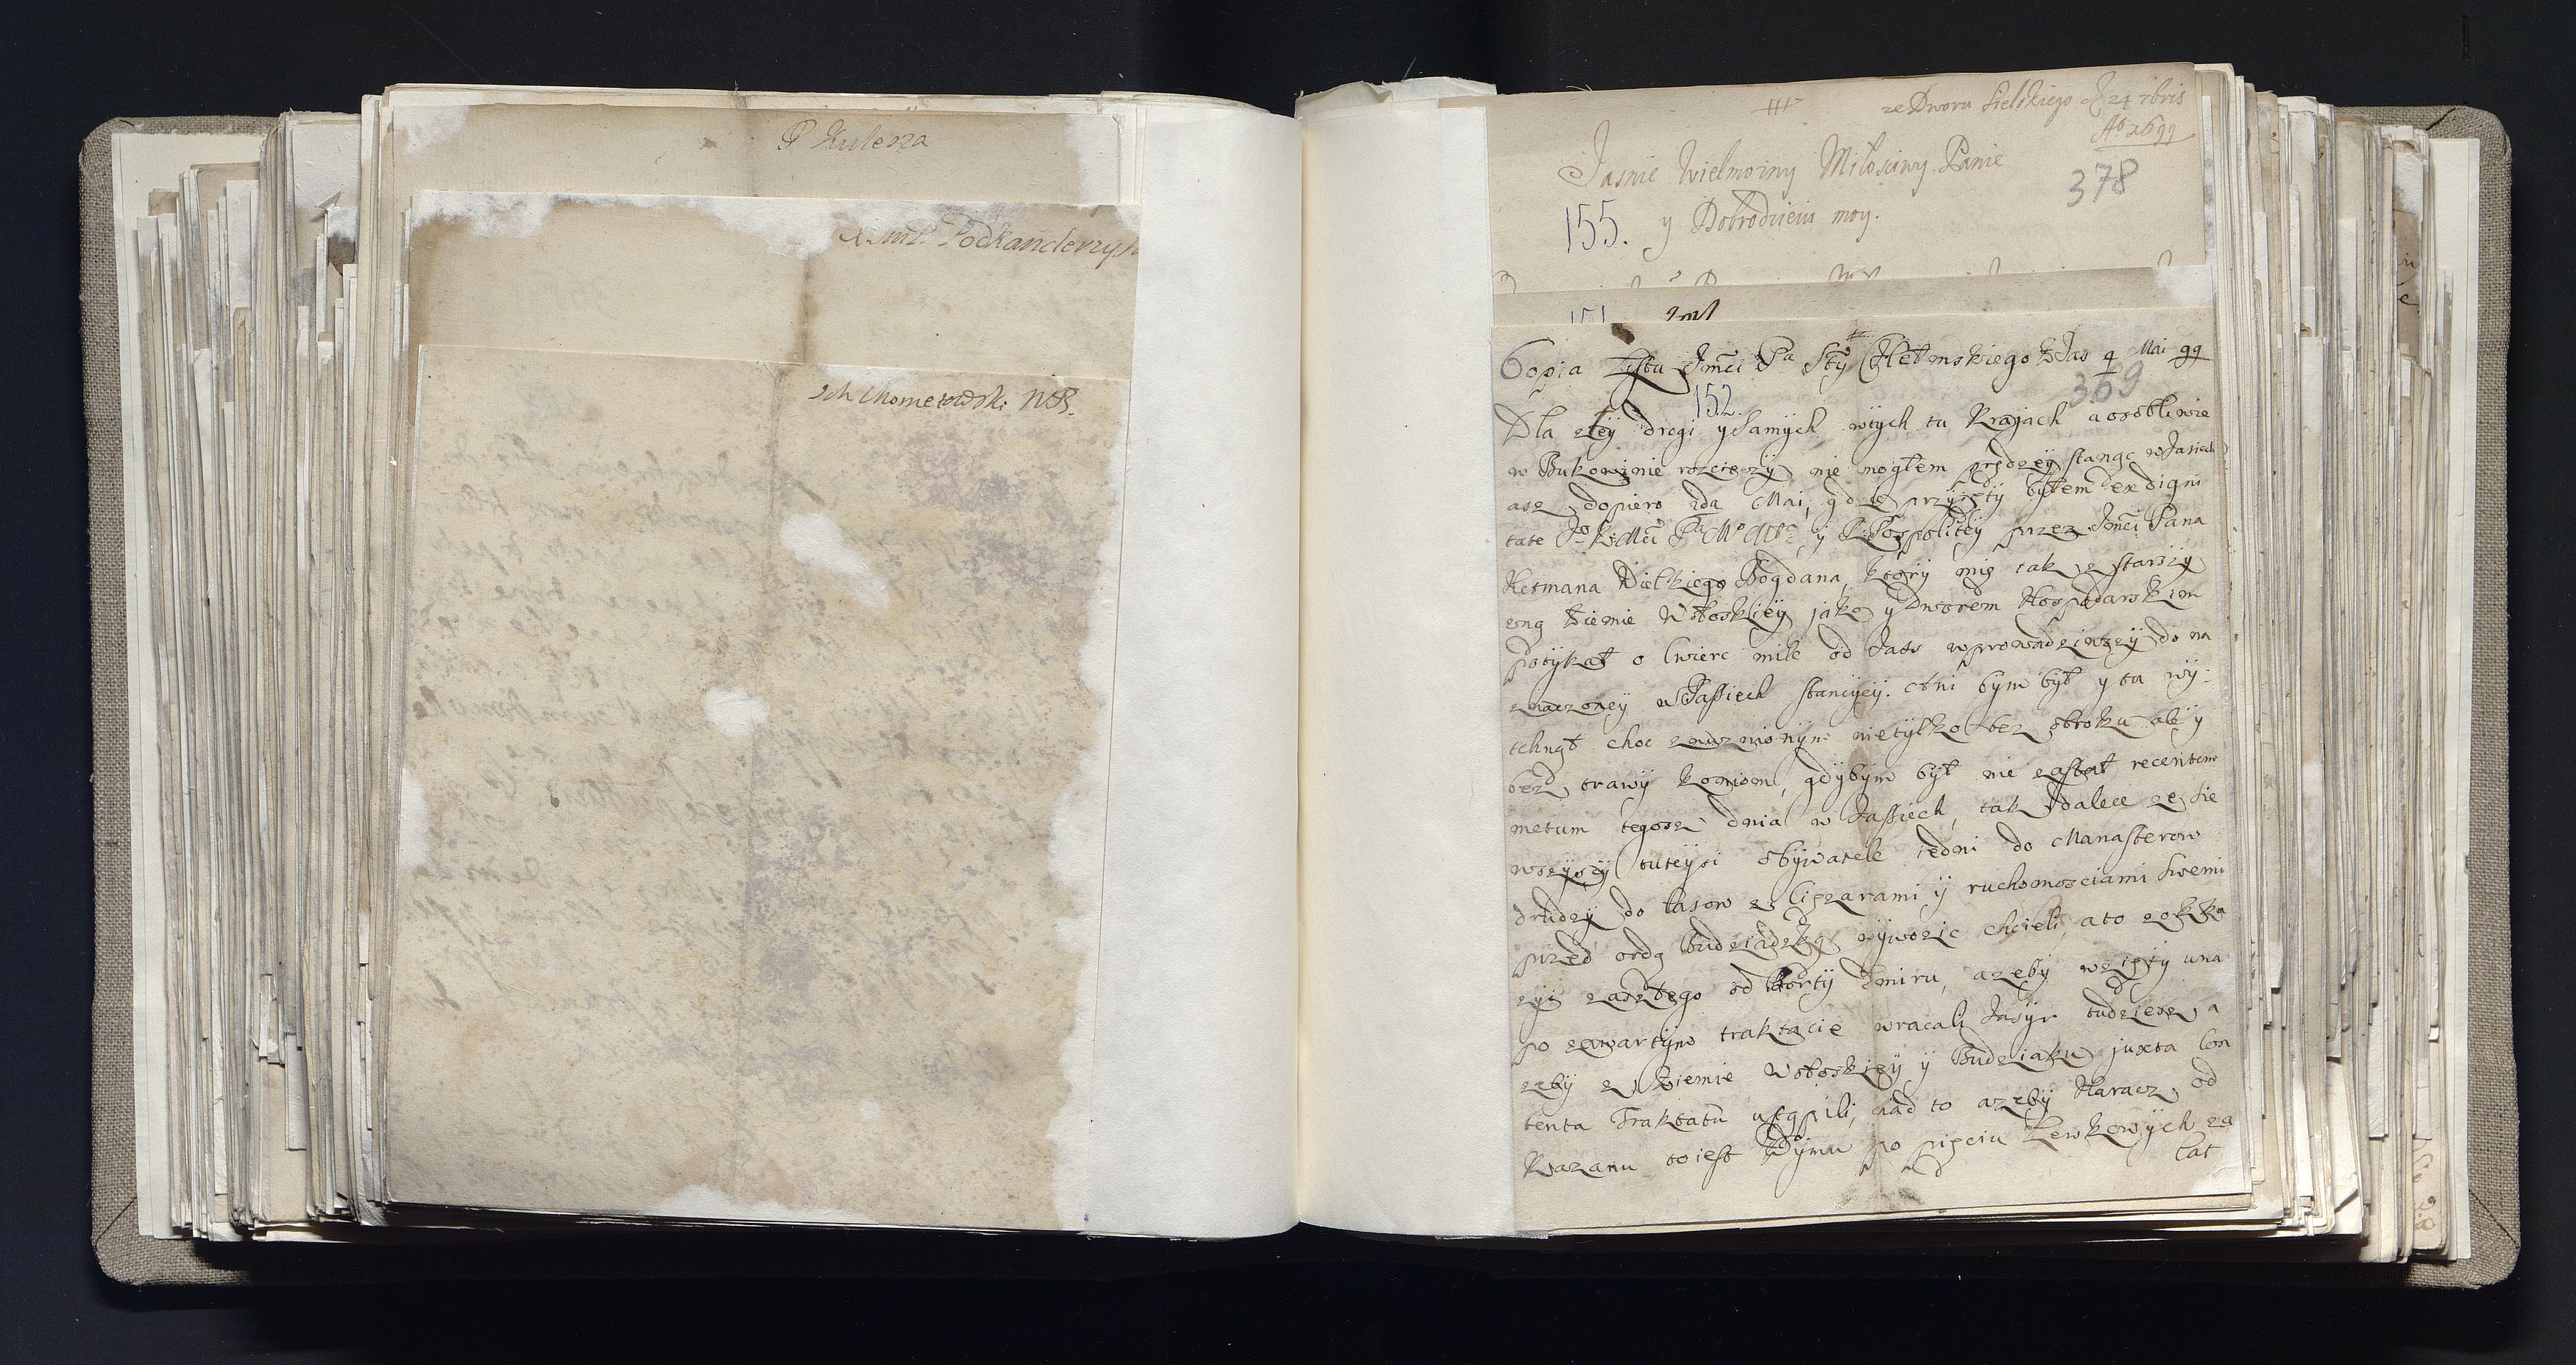 P Kulesza
X. Jmć. Podkanclerzy
Chomętowski NB.
ze Dworu Sielskiego d. 24 7bris
Aº 1699
Jasnie Wielmozny Miłosciwy Panie
378
155. y Dobrodzieiu moy.
Copia Listu Jmći Pª Stÿ Chełmskiego z Jas 4 Mai 99
369
152.
Dla złeÿ drogi y samych wtych tu Krajach a osobliwie
w Bukowinie rozcieczÿ nie mogłem prędzeÿ stanąc w Jasiech
asz dopiero 2da Mai, gdzie przÿięty byłem ex digni
tate Jº KrMći Pª Mº Mº y RPospoliteÿ przez Jmći Pana
Hetmana Wielkiego Bogdana, ktorÿ mię tak z starszÿ
zną Ziemie Wołoskieÿ jako y Dworem Hospodarskiem
potÿkał o cwierc mile od Jass wprowadziwszÿ do na
znaczoneÿ w Jassiech stancyeÿ. Ani bym był y tu wÿ:
tchnął choc znuznionÿm nietÿlko bez obroku ale ÿ
bez trawÿ koniom, gdÿbÿm bÿł nie zastał recentem
metum tegosz dnia w Jassiech, tak dalece ze sie
wszÿscÿ tuteÿsi obÿwatele iedni do Manasterow
drudzÿ do lasow z cięzarami ÿ ruchomosciami swemi
przed ordą Budziacką wÿwozic chcieli, a to z okka
zÿi zaszłego od Portÿ Emiru, azebÿ wzięty una
po zawartÿm traktacie wracali Jasÿr tudziesz a
zebÿ z Ziemie Wołoskieÿ ÿ Budziaku juxta con
tenta Traktatu ustąpili, nad to azebÿ Haracz od
Kazanu to iest Dÿmu po pięciu Lewkowÿch za
lat